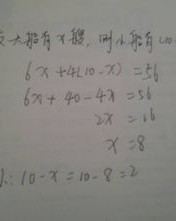 大船有x艘,则小船有(10
6x+4(10-x)=56
6x+40-4x=56
2x=16
x=8
∴10-x=10-8=2